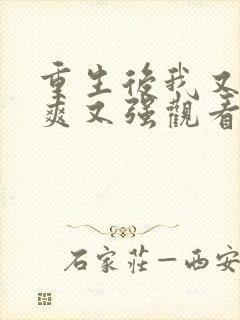 重生後我又
爽又强觀看
石家莊—西安